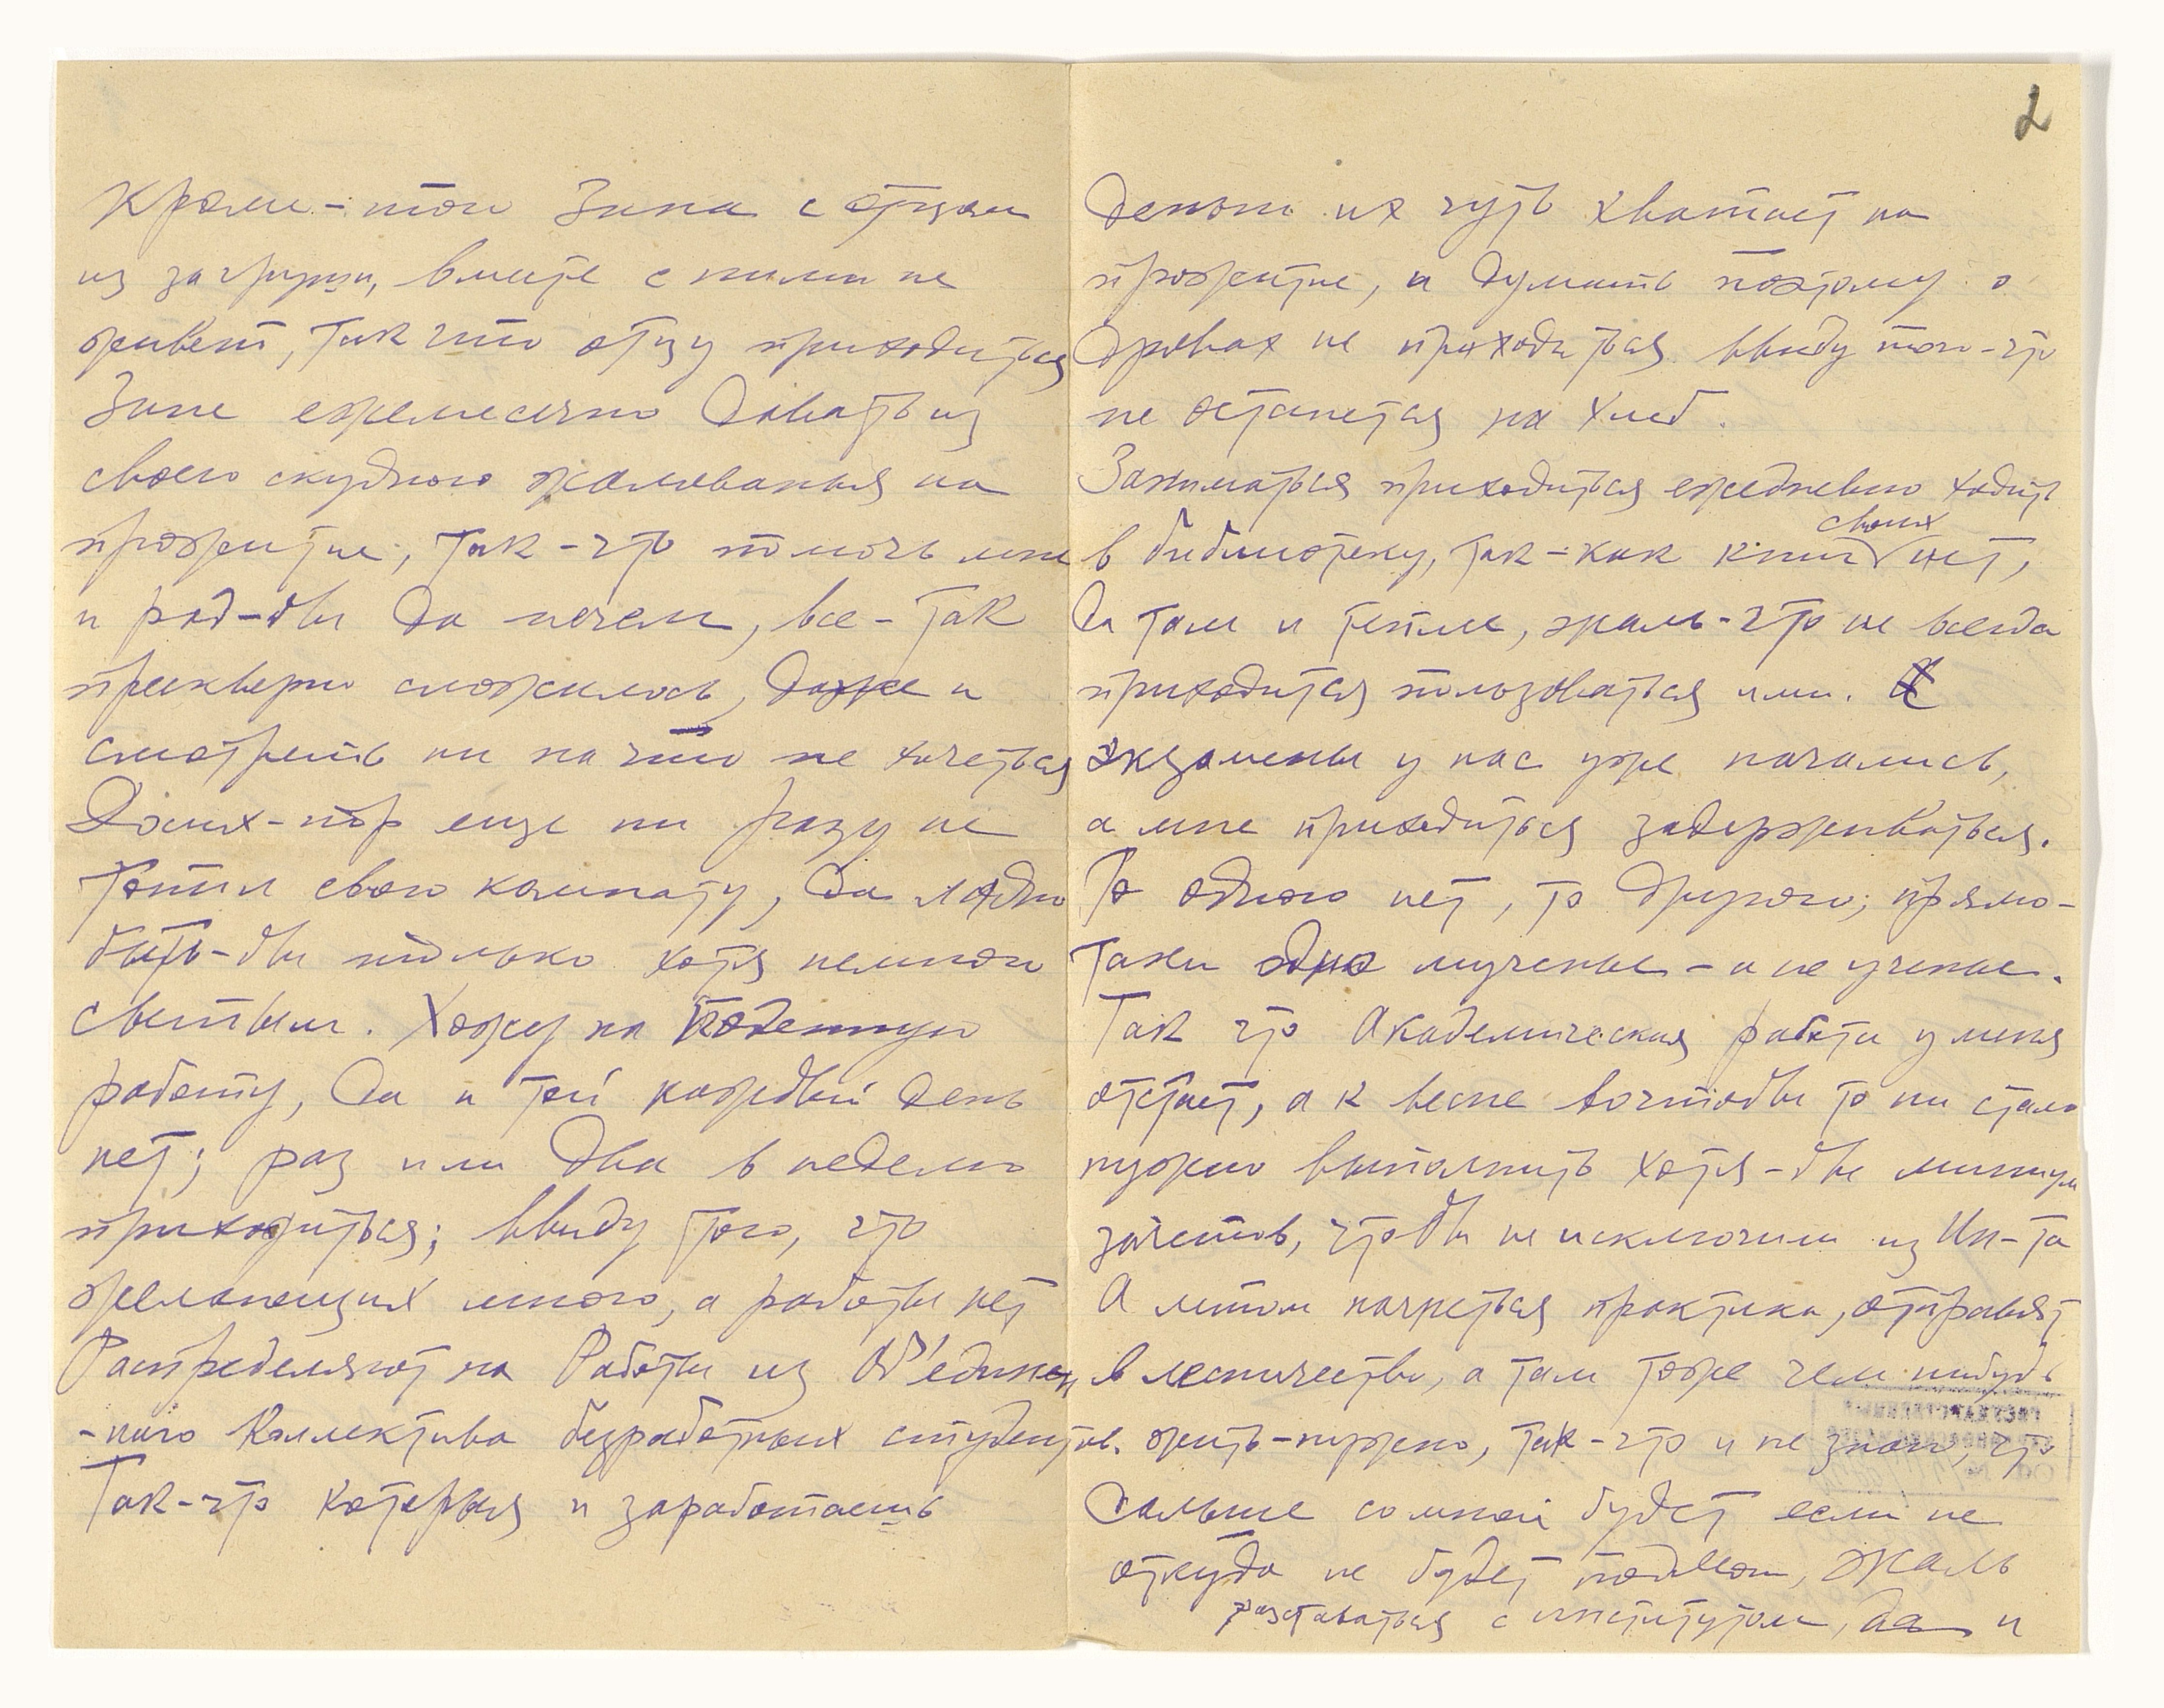 Кроме-того Зина с отцом
из за группы, вместе с ними не
живет, так что отцу приходиться
Зине ежемесячно давать из
своего скудного жалованья на
прожитие, так-что помочь мне
и рад-бы да нечем, все-так
прескверно сложилось, даже и
смотреть ни на что не хочеться
До сих-пор еще ни разу не
топил свою комнату, да ладно
быть-бы только хотя немного
сытым. Хожу на поденную
работу, да и той каждый день
нет; раз или два в неделю
приходиться; ввиду того, что
желающих много, а работы нет
Распределяют на Работы из Об'единен
-ного Коллектива безработных студентов.
Так-что которыя и заработаешь
2
деньги их чуть хватает на
прожитие, и думать поэтому о
дровах не приходиться ввиду того-что
не останется на хлеб.
Заниматься приходиться ежедневно ходить
своих
в библиотеку, так-как книг нет,
Да там и теплее, жаль-что не всегда
приходится пользоваться ими.
Экзамены у нас уже начались,
а мне приходиться задерживаться.
То одного нет, то другого; прямо-
таки одно мученье - а не ученье.
Так что Академическая работа у меня
отстает, а к весне вочтобы то ни стало
нужно выполнить хотя-бы минимум
зачетов, чтобы не исключили из Ин-та
А летом начнеться практика, отправят
в лесничество, а там тоже чем нибудь
жить-нужно, так-что и не знаю, что
дальше со мной будет если не
откуда не будет подмоги, жаль
разставаться с институтом, да и